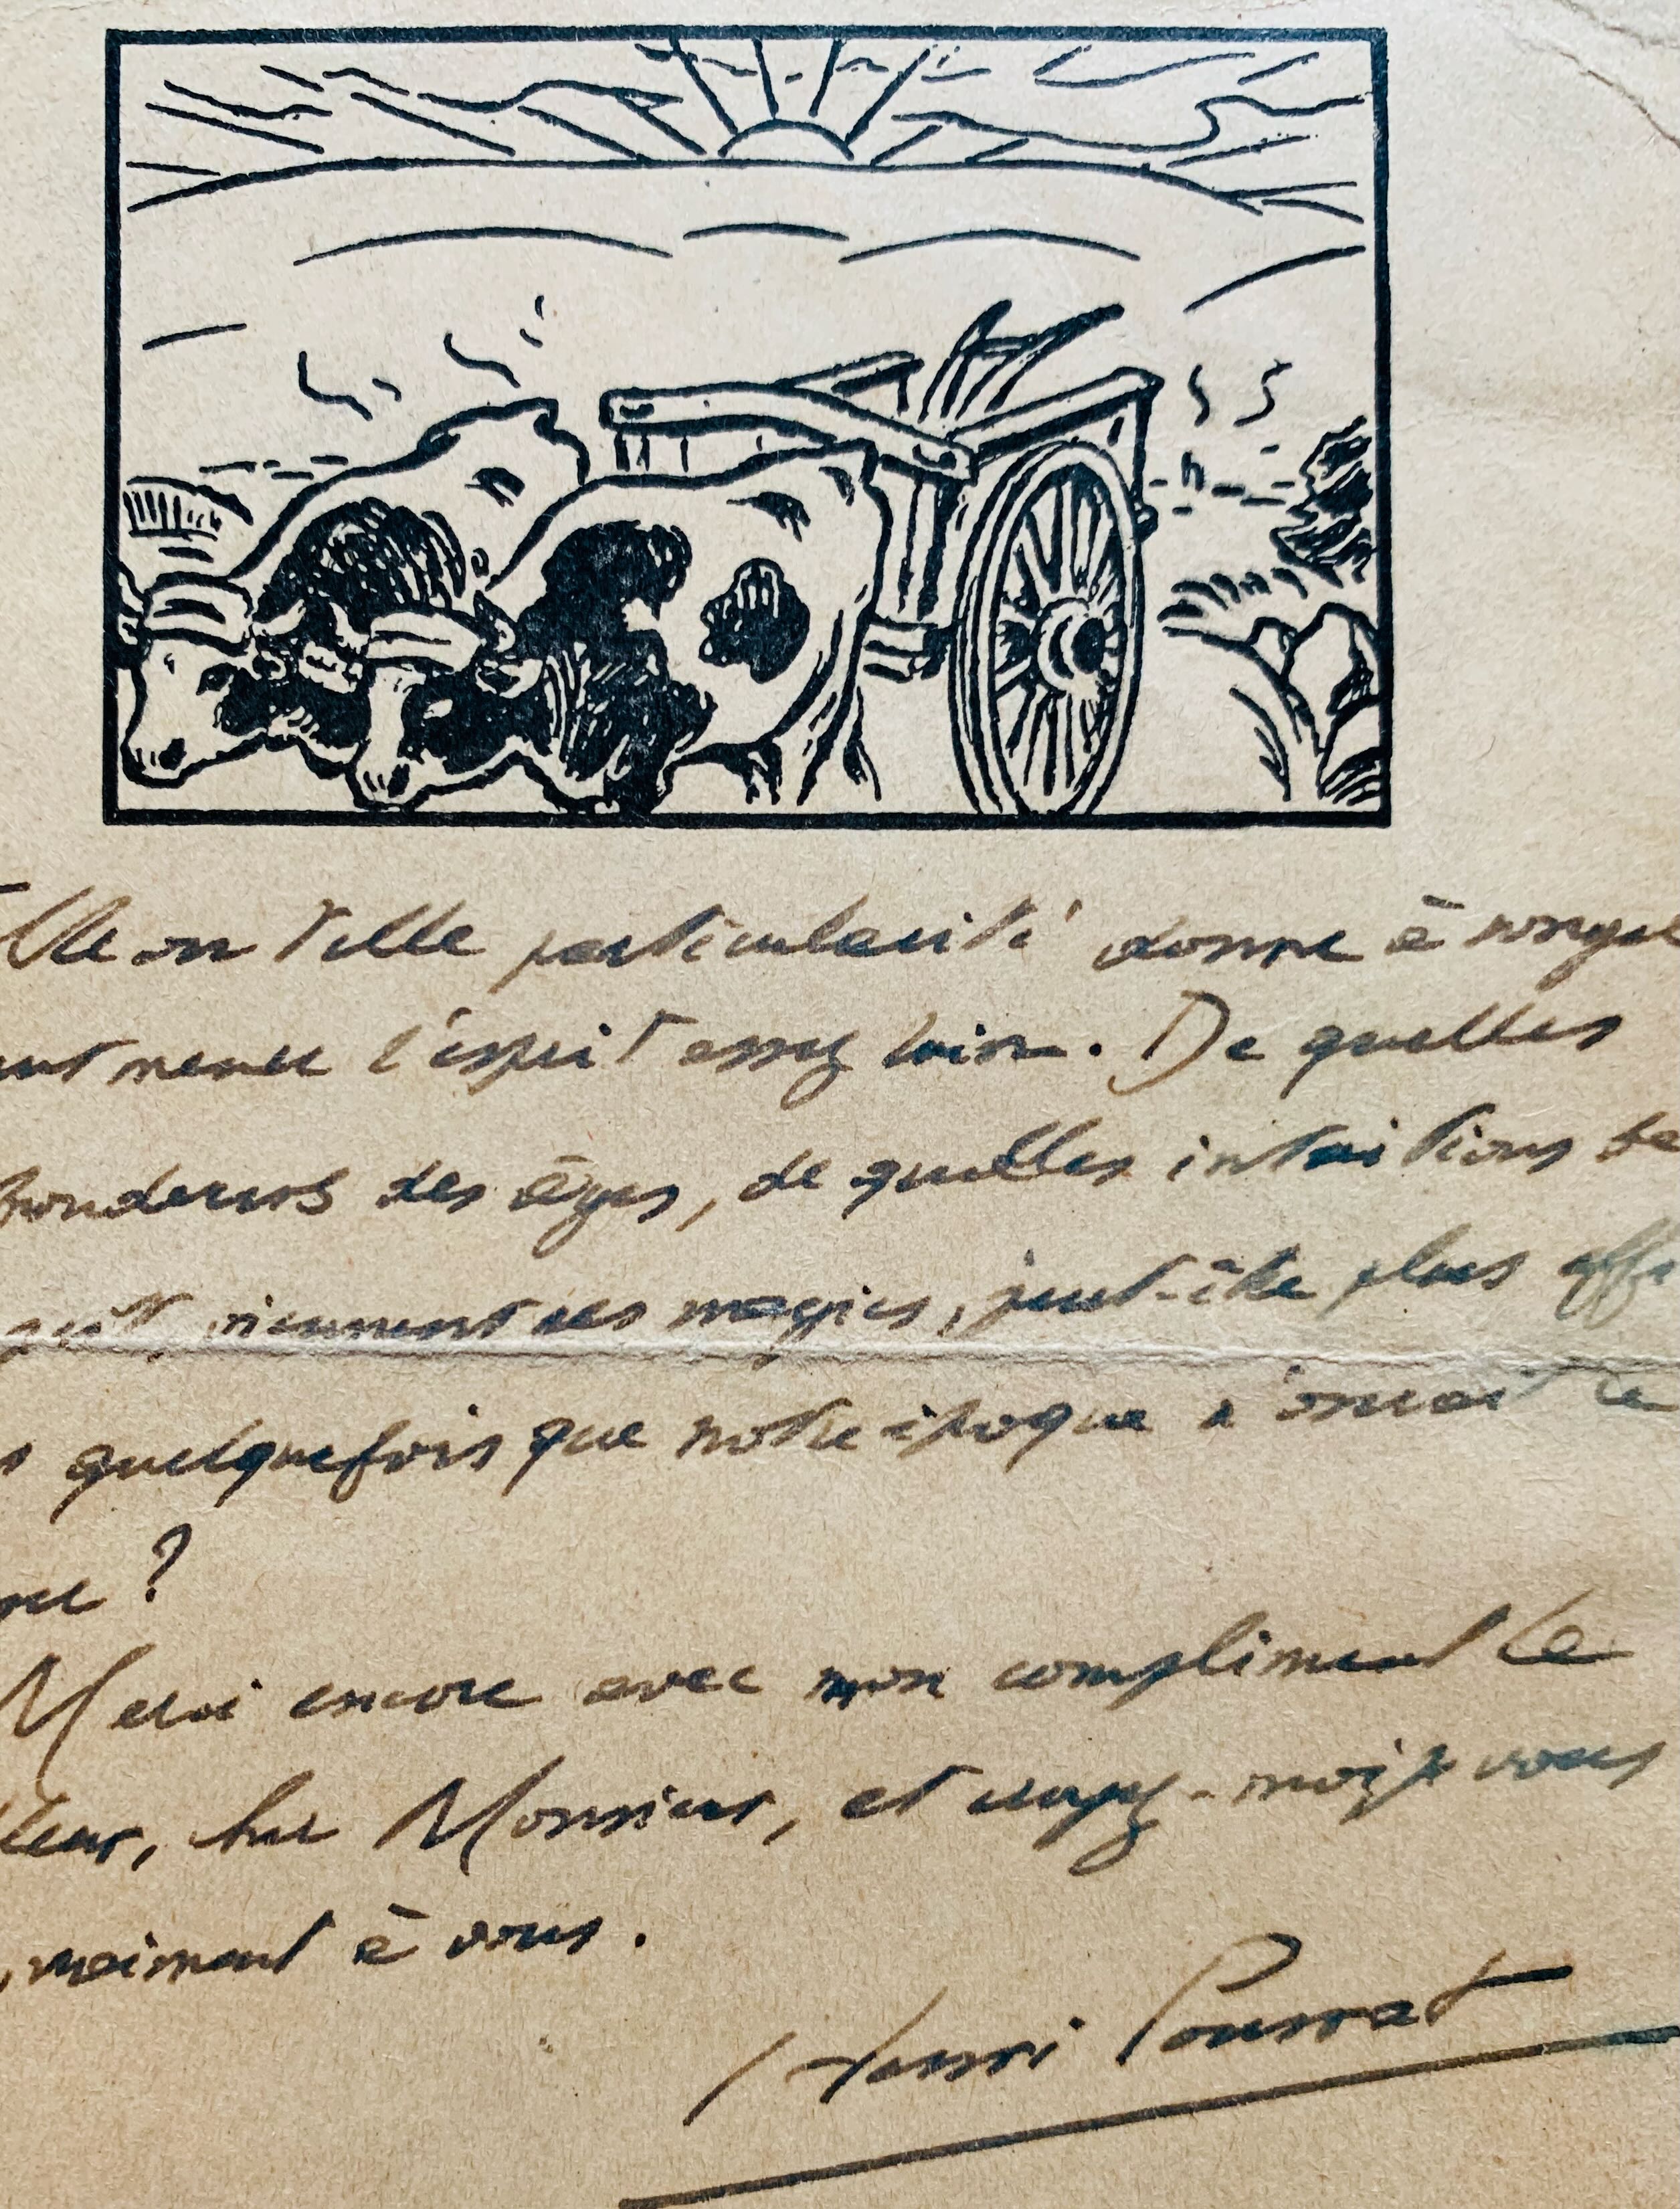 Telle ou telle particularité donne à songer
mener l'esprit assez loin. De quelles
profondeurs des âges, de quelles intuitions de
viennent ces magies, peut-être plus
quelquefois que notre époque n'oserait le
?
Merci encore avec mon compliment le
cher Monsieur, et croyez-moi je vous
vraiment à vous.
Henri Pourrat